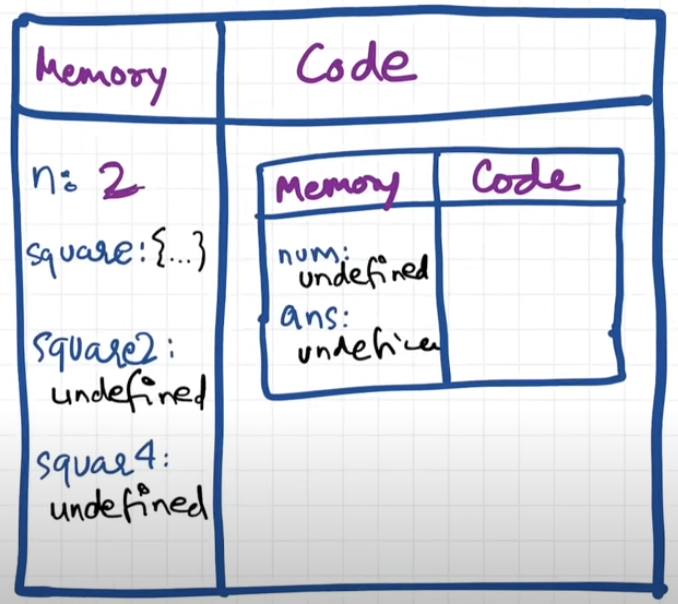 Memory
Code
n: 2
square: {...}
square2:
undefined
squar4:
undefined
Memory
Code
num:
undefined
ans: